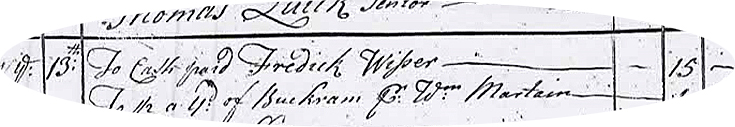 Thomas Quick Senior —
13th To Cash paid Fredick Wisser — - 15 -
To ½ a yd of Buckram pr Wm Martain —